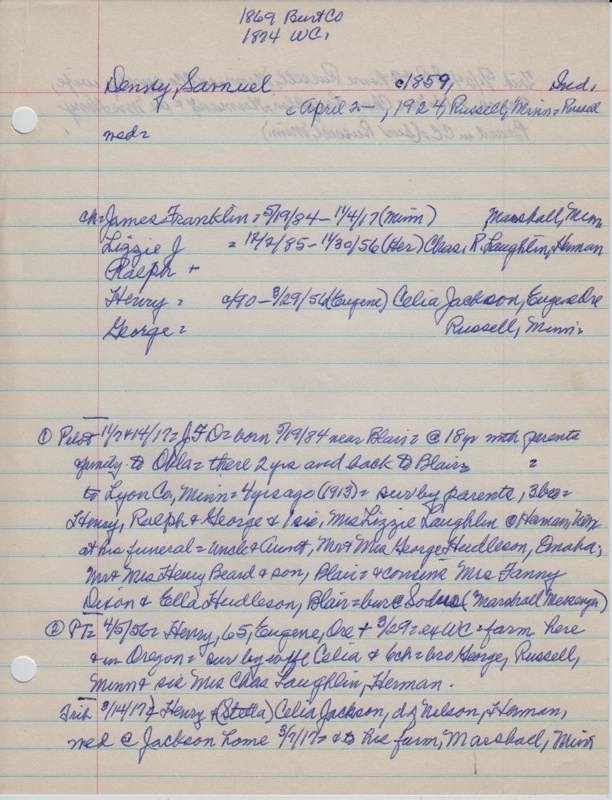 1869 Burt Co
1874 WC,
Denny, Samuel c1859, Ind,
c April 2-, 1924, Russell, Minn = Russell
med=
ch= James Franklin = 5/19/84 - 11/4/17 (Minn) Marshall, Minn
Lizzie J = 12/2/85 - 11/30/56 (Her) Chas, R Laughlin, Herman
Ralph +
Henry = c/90 - 3/29/56 (Eugene) Celia Jackson, Eugene Ore
George = Russell, Minn=
① Pilot 11/7&14/17= J.F.D= born 5/19/84 near Blair= @ 18yr with parents
family to Okla= there 2yrs and back to Blair= =
to Lyon Co, Minn= 4yrs ago (1913)= sur by parents, 3bro=
Henry, Ralph & George & 1 sis, Mrs Lizzie Laughlin @ Herman,
at his funeral= uncle & Aunt, Mr & Mrs George Hudleson, Omaha;
Mr & Mrs Henry Beard & son, Blair= & cousins Mrs Fanny
Dixon & Ella Hudleson, Blair= bur @ Sodus (Marshall Messenger)
② PT= 4/5/56= Henry, 65, Eugene, Ore + 3/29= ex WC= farm here
& in Oregon= sur by wife Celia & 6ch= bro George, Russell,
Minn & sis Mrs Chas Laughlin, Herman.
Trib 3/14/17= Henry & (Stella) Celia Jackson, d/ Nelson, Herman,
med @ Jackson home 3/7/17= & to his farm, Marshall, Minn